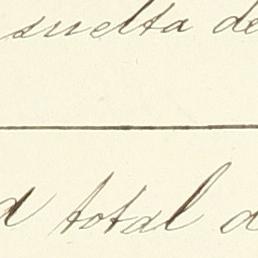 suelta de
total d